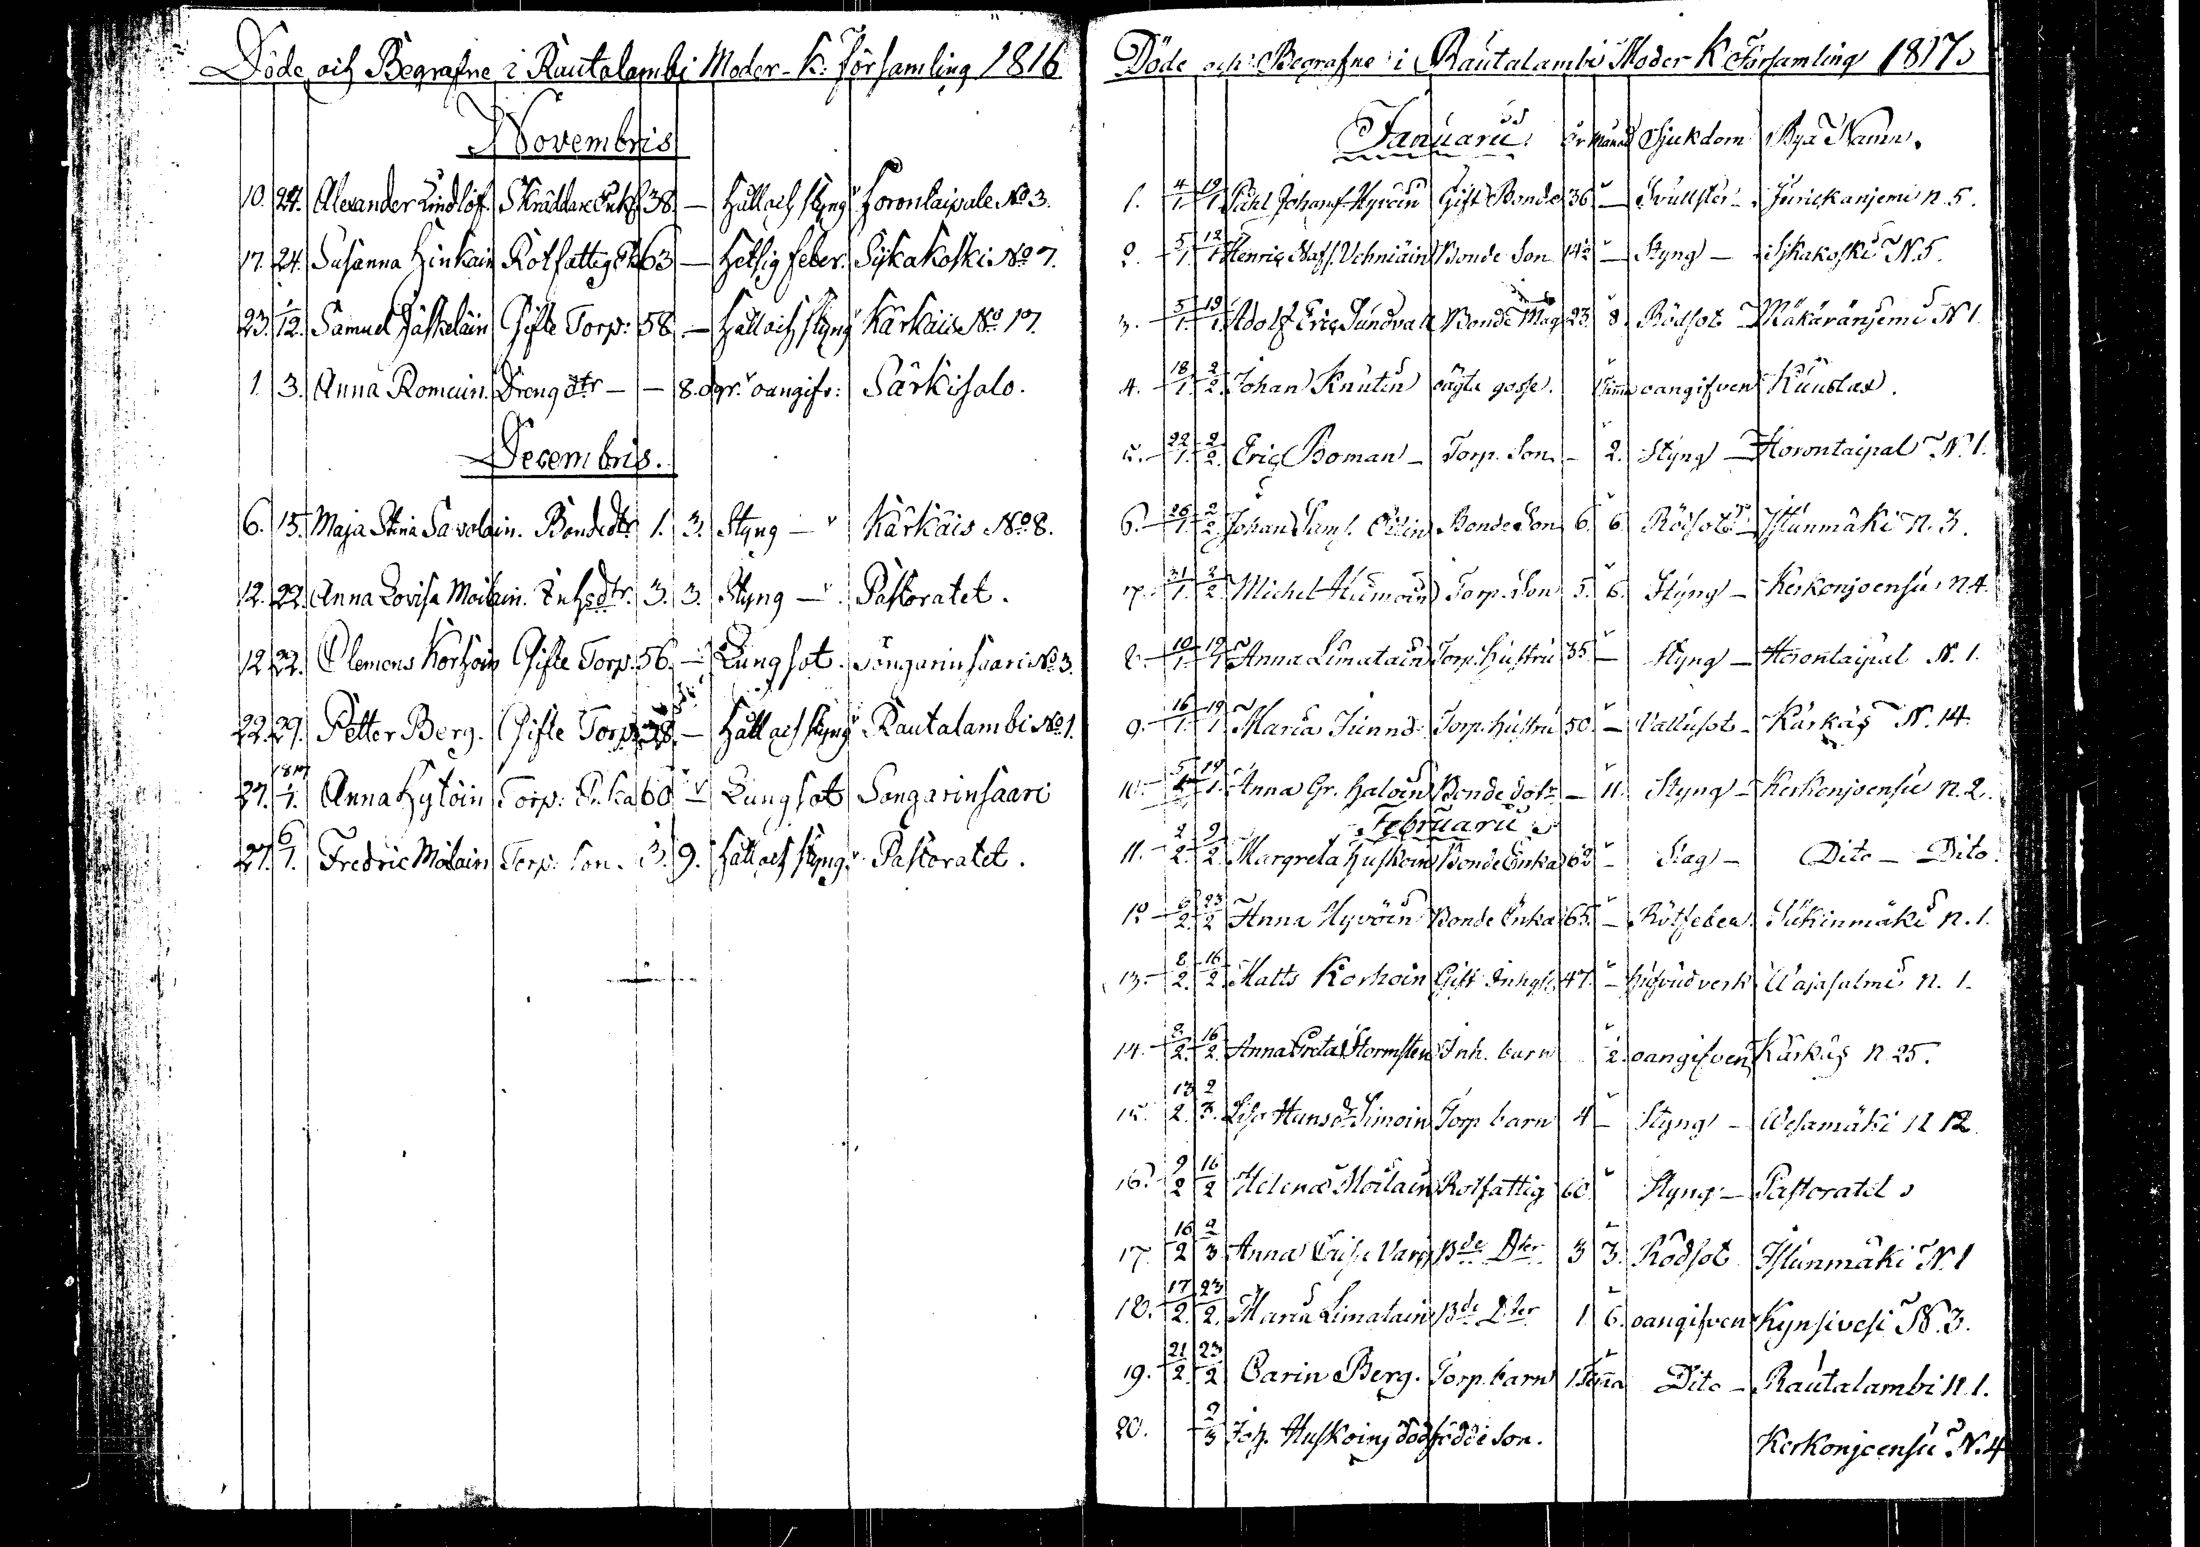 Döde och Begrafne i Rautalambi Moder-K: församling 1816
Novembris
10. 24. Alexander Lindlöf. Skräddare Enkl. 38 — Håll och styng Horontaipale No 3.
17. 24. Susanna Hinkain Rotfattig 63 — Hetsig feber. Sykäkoski No 7.
23. 1/12. Samuel Jäskeläin Gifte Torp: 58 — Håll och styng Kärkäis No 17.
1. 3. Anna Romain. Dreng dtr — — 8. dgr. oangifv: Särkisalo.
Decembris.
6. 15. Maja Stina Savolain. Bondedtr 1. 3. Styng — Kärkäis No 8.
12. 22. Anna Lovisa Moilain. Inhs dtr. 3. 3. Styng — Pastoratet.
12. 22. Clemens Korhoin Gifte Torp. 56. — Lungsot. Songarinsaari No 3.
22. 29. Petter Berg. Gifte Torp. 38 — Håll och styng Rautalambi No 1.
27. 1817 1/1. Anna Hytöin Torp: Enka 60 — Lungsot Songarinsaari
27. 6/1. Fredric Moilain Torp: Son. 3. 9. Håll och styng. Pastoratet.
Döde och Begrafne i Rautalambi Moder K Församling 1817
Januarii år Månad Sjukdom Bya Namn.
1. 4/1 19/1 Påhl Johansf. Hyvöin Gift Bonde 36 — Jurickaniemi n. 5.
2. 5/1. 12/1 Henric Staf. Vehniäin Bonde Son 14½ — Styng — Sykäkoski N. 5.
3. 5/1. 19/1 Adolf Eric Sundvall Bonde Mag 23. 8. Rödsot — Mäkäräniemi N 1.
4. 18/1. 2/2. Johan Knutin oägte gosse. oangifven Kuuslax.
5. 22/1. 2/2. Eric Boman — Torp. Son — 2. Styng — Horontaipal N. 1.
6. 26/1. 2/2. Johan Sam. Oitin Bonde Son 6. 6 Rödsot — Istunmäki n. 3.
7. 31/1. 2/2. Michel Humoin Torp. Son 5. 6. Styng — Kerkonjoensu n. 4.
8. 10/1. 19/1 Anna Limatain Torp. hustru 35 — Styng — Horontaipal N. 1.
9. 16/1. 19/1 Maria Torp. hustru 50 — Vattusot — Kärkäs N. 14.
10. 5/1. 19/1. Anna Gr. Haloin Bonde dotr — 11. Styng — Kerkonjoensu n. 2.
Februarii
11. 2/2. 9/2. Margreta Huskoin Bonde Enka 62 — Slag — Dito — Dito.
12. 6/2. 23/2 Anna Hyvöin Bonde Enka 65. — Rötfeber Sukinmäki n. 1.
13. 8/2. 16/2. Matts Korhoin Gift Inhys. 47. — hufvudverk Vajasalmi n. 1.
14. 8/2. 16/2. Anna Greta Stormsten Inh. barn ½ oangifven Kärkäs n. 25.
15. 13/2. 2/3. Lisa Hans dr Simoin Torp barn 4 — Styng — Wesamäki N 12.
16. 9/2 16/2 Helena Moilain Rotfattig 60 Styng — Pastoratet
17. 16/2 2/3 Anna Caisa Bde Dter 3 3. Rödsot Istunmäki N. 1
18. 17/2. 23/2. Maria Limatain Bde Dter 1 6. oangifven Kynsivesi N. 3.
19. 21/2. 23/2 Carin Berg. Torp. barn 1 Dito — Rautalambi n. 1.
20. 2/3 Joh. Huskoins dödfödde son. Kerkonjoensu N. 4